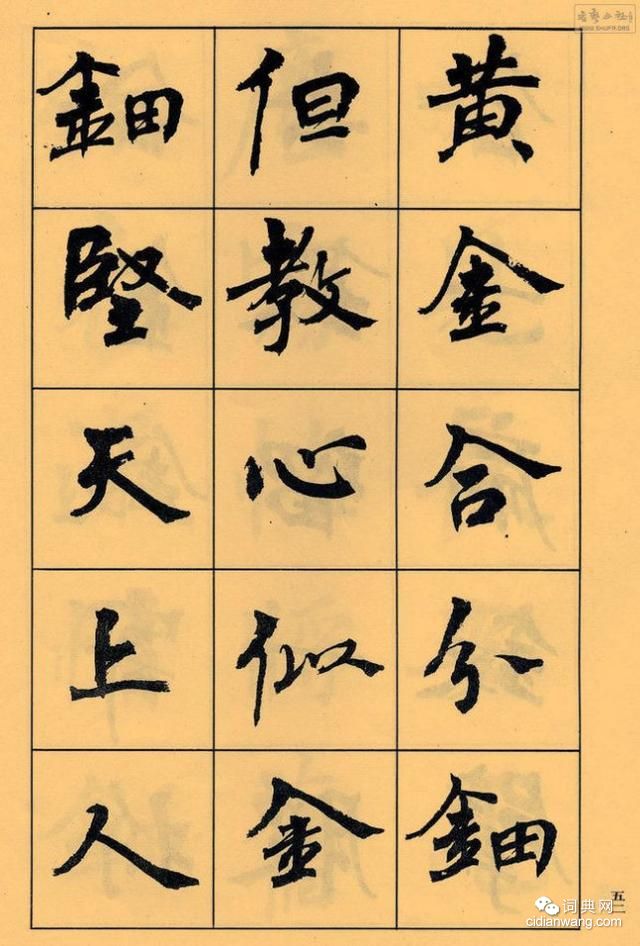 黄金合分鈿
但教心似金
鈿堅天上人
五二
WWW.SHUFA.ORG
词典网
cidianwang.com